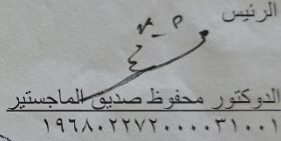 الرئيس
الدوكتور محفوظ صديق الماجستير
١٩٦٨٠٢٢٧٢٠٠٠٠٣١٠٠١